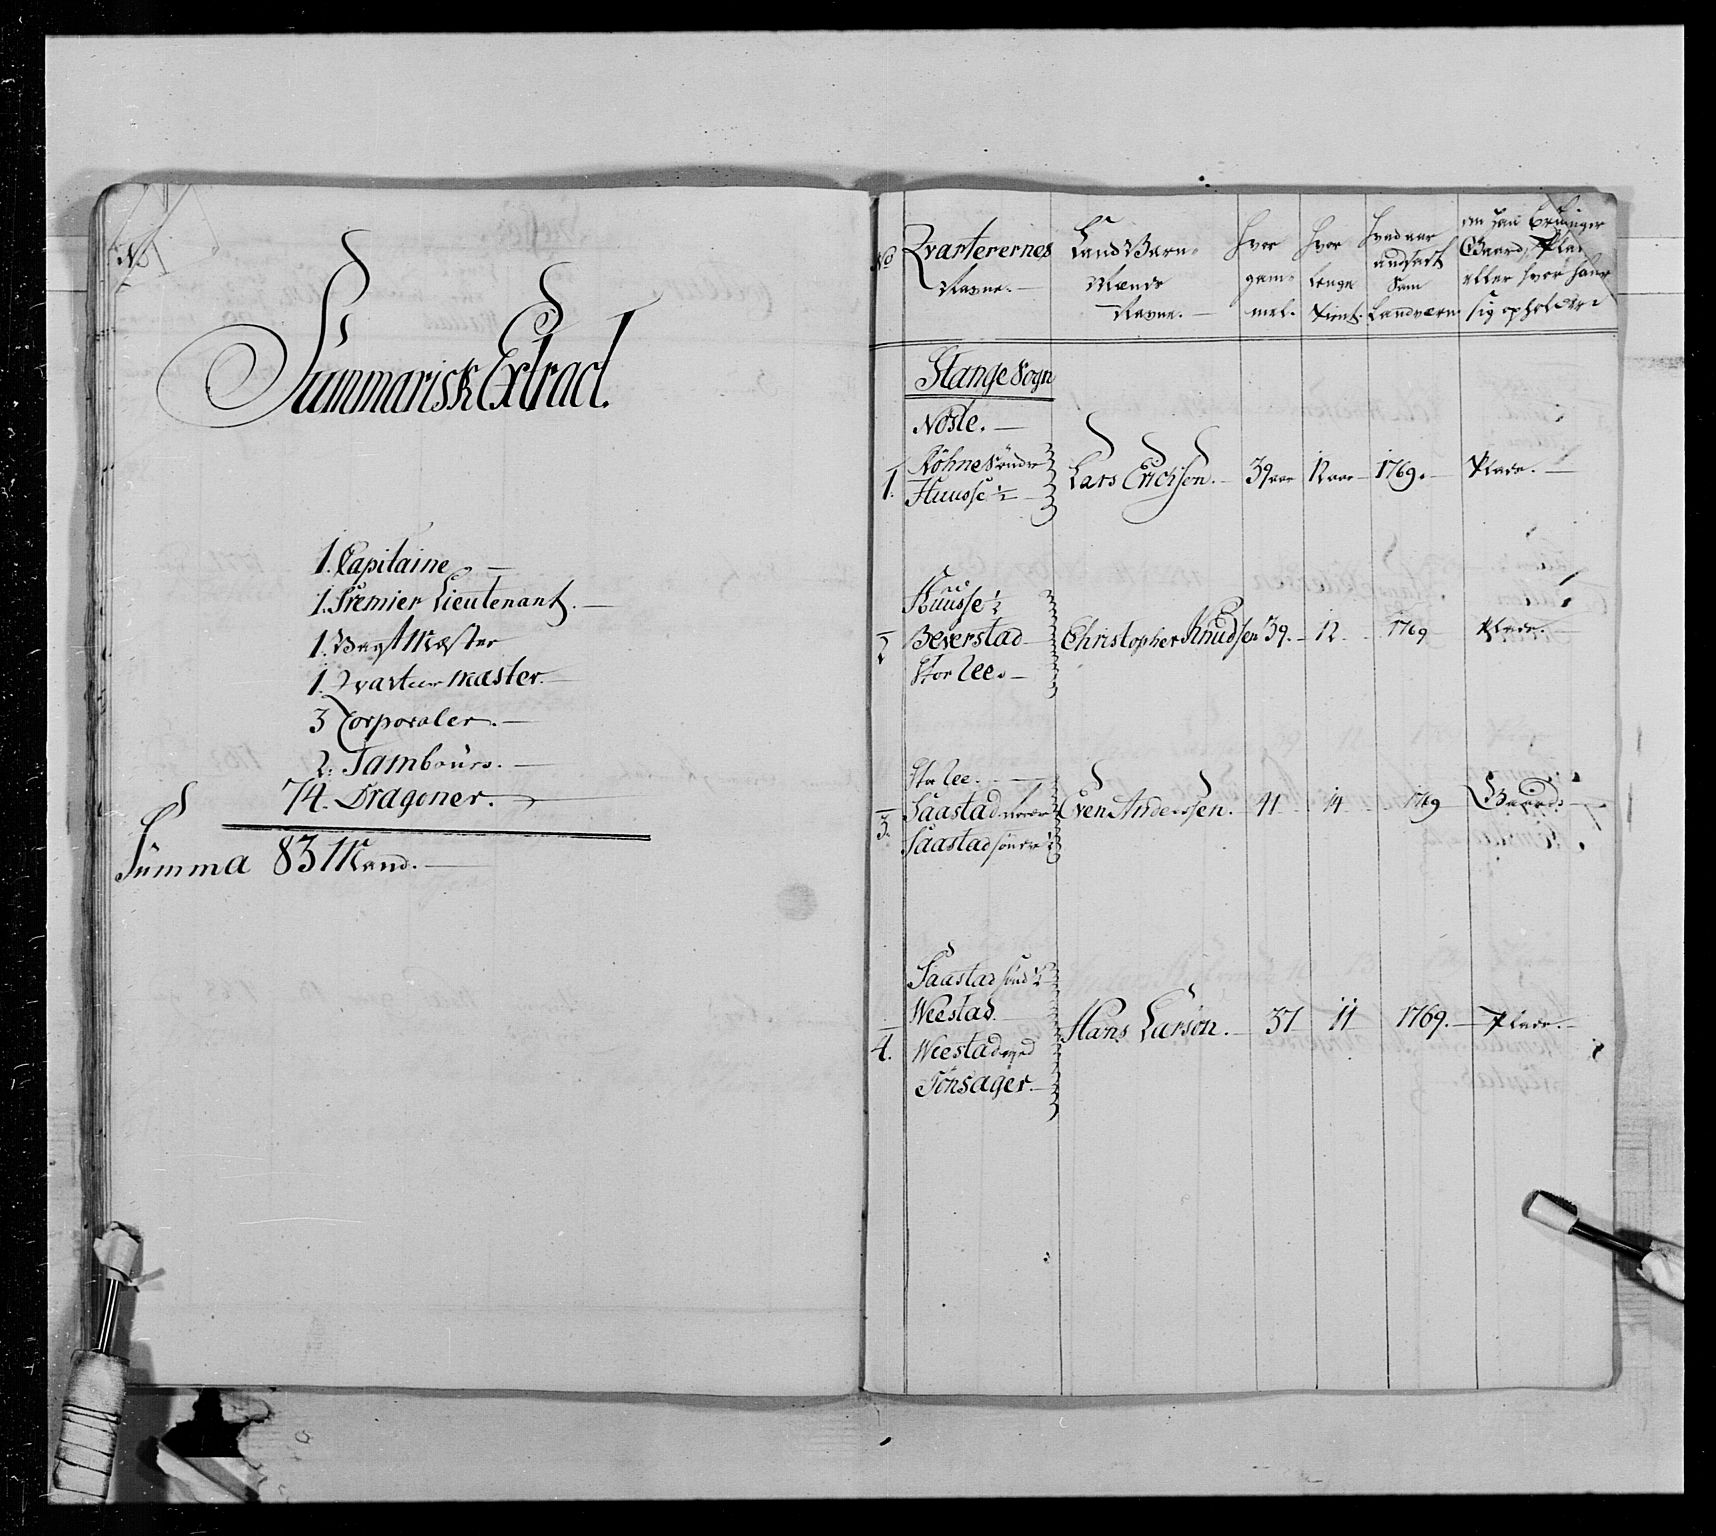 No
Summarisk Extract.
1. Capitaine
1. Premier Lieutenant.
1. Vagt Mæster
1. Qvarteer Mæster.
3 Corporaler.
2. Tambours.
74. Dragoner.
Summa 83 Mand.
No
Qvarterernes Navne.
Land Værn- Mænds Navne.
Hvor gam- mel.
Hvor lenge tient.
Hvad aar andsadt som Landværn
om han bruuger Gaard, Plads eller hvor hand sig opholder
Stange Sogn
Nøsle.
1.
Röhne Söndre
Huusse ½
Lars Erichsen. 39 aar 12 aar 1769. Plads.
2
Huusse ½
Beverstad
Stor Lee.
Christopher Knudsen 39. 12. 1769 Plads.
3.
Stor Lee.
Saastad nordre
Saastad söndre ½
Even Anderssen. 41 14 1769 Gaard.
4.
Saastad sönd ½
Weestad
Weestad
Tönsager.
Hans Larson. 37 11 1769. Plads.